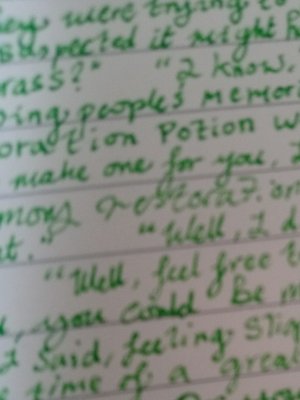 were trying to
suspected it might
rass?" "I know.
ing people's memori
oration Potion w
make one for you, I
mory restoration
t." "Well, I d
"Well, feel free t
, you could Be m
I said, feeling slig
time of a great